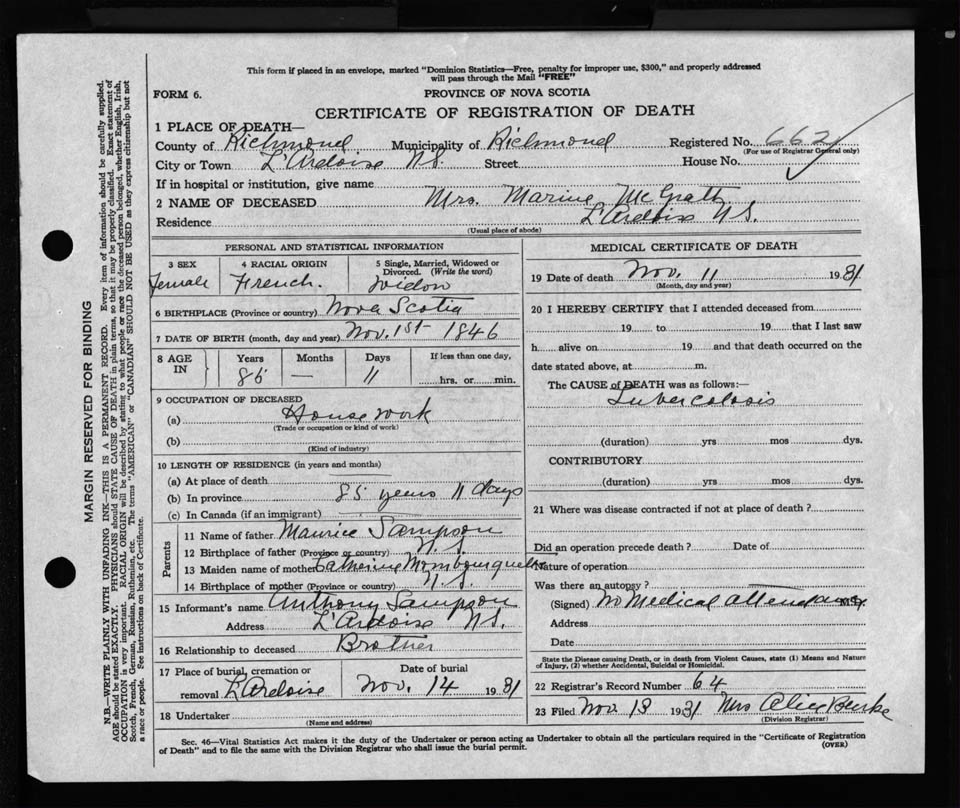 This form if placed in an envelope, marked "Dominion Statistics—Free, penalty for improper use, $300," and properly addressed
will pass through the Mail "FREE"
FORM 6.
PROVINCE OF NOVA SCOTIA
CERTIFICATE OF REGISTRATION OF DEATH
1 PLACE OF DEATH—
County of Richmond Municipality of Richmond Registered No. 662
(For use of Registrar General only)
City or Town L'Ardoise N.S. Street House No.
If in hospital or institution, give name
2 NAME OF DECEASED Mrs. Marine McGrath
Residence L'Ardoise N.S.
(Usual place of abode)
PERSONAL AND STATISTICAL INFORMATION
3 SEX 4 RACIAL ORIGIN 5 Single, Married, Widowed or
Divorced. (Write the word)
Female French. Widow
6 BIRTHPLACE (Province or country) Nova Scotia
7 DATE OF BIRTH (month, day and year) Nov. 1st 1846
8 AGE IN Years Months Days If less than one day,
85 — 11 hrs. or min.
9 OCCUPATION OF DECEASED
(a) House work
(Trade or occupation or kind of work)
(b)
(Kind of industry)
10 LENGTH OF RESIDENCE (in years and months)
(a) At place of death
(b) In province 85 years 11 days
(c) In Canada (if an immigrant)
Parents
11 Name of father Maurice Sampson
12 Birthplace of father (Province or country) N.S.
13 Maiden name of mother Catherine Mombourquette
14 Birthplace of mother (Province or country) N.S.
15 Informant's name Anthony Sampson
Address L'Ardoise N.S.
16 Relationship to deceased Brother
17 Place of burial, cremation or Date of burial
removal L'Ardoise Nov. 14 1931
18 Undertaker
(Name and address)
MEDICAL CERTIFICATE OF DEATH
19 Date of death Nov. 11 1931
(Month, day and year)
20 I HEREBY CERTIFY that I attended deceased from
19 to 19 that I last saw
h alive on 19 and that death occurred on the
date stated above, at m.
The CAUSE of DEATH was as follows:—
Tubercolosis
(duration) yrs mos dys.
CONTRIBUTORY
(duration) yrs mos dys.
21 Where was disease contracted if not at place of death?
Did an operation precede death? Date of
Nature of operation
Was there an autopsy?
(Signed) No Medical attendance M.D.
Address
Date
State the Disease causing Death, or in death from Violent Causes, state (1) Means and Nature
of Injury, (2) whether Accidental, Suicidal or Homicidal.
22 Registrar's Record Number 64
23 Filed Nov 13 1931 Mrs Alice Burke
(Division Registrar)
Sec. 46—Vital Statistics Act makes it the duty of the Undertaker or person acting as Undertaker to obtain all the particulars required in the "Certificate of Registration
of Death" and to file the same with the Division Registrar who shall issue the burial permit.
(OVER)
MARGIN RESERVED FOR BINDING
N.B.—WRITE PLAINLY WITH UNFADING INK—THIS IS A PERMANENT RECORD. Every item of information should be carefully supplied.
AGE should be stated EXACTLY. PHYSICIANS should STATE CAUSE OF DEATH in plain terms, so that it may be properly classified. Exact statement of
OCCUPATION is very important. RACIAL ORIGIN will be described by stating to what people or race the deceased person belonged, whether English, Irish,
Scotch, French, German, Russian, Ruthenian, etc. The terms "AMERICAN" or "CANADIAN" SHOULD NOT BE USED as they express citizenship but not
a race or people. See instructions on back of Certificate.